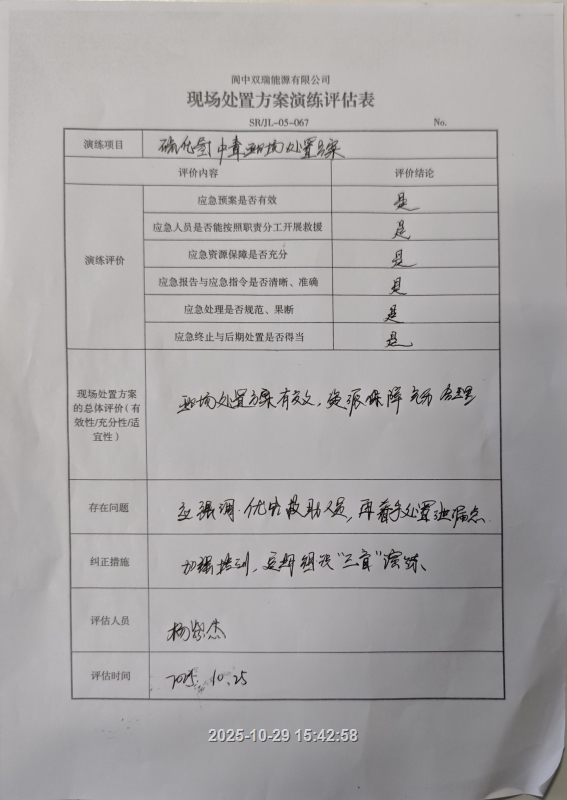 阆中双瑞能源有限公司
现场处置方案演练评估表
SR/JL-05-067 No.
演练项目 硫化氢中毒现场处置方案
评价内容 评价结论
演练评价
应急预案是否有效 是
应急人员是否能按照职责分工开展救援 是
应急资源保障是否充分 是
应急报告与应急指令是否清晰、准确 是
应急处理是否规范、果断 是
应急终止与后期处置是否得当 是
现场处置方案
的总体评价（有
效性/充分性/适
宜性）
现场处置方案有效，资源保障充分合理
存在问题 应强调优先救助人员，再着手处置泄漏点
纠正措施 加强培训，定期组织"三盲"演练
评估人员 杨
评估时间 2025.10.25
2025-10-29 15:42:58